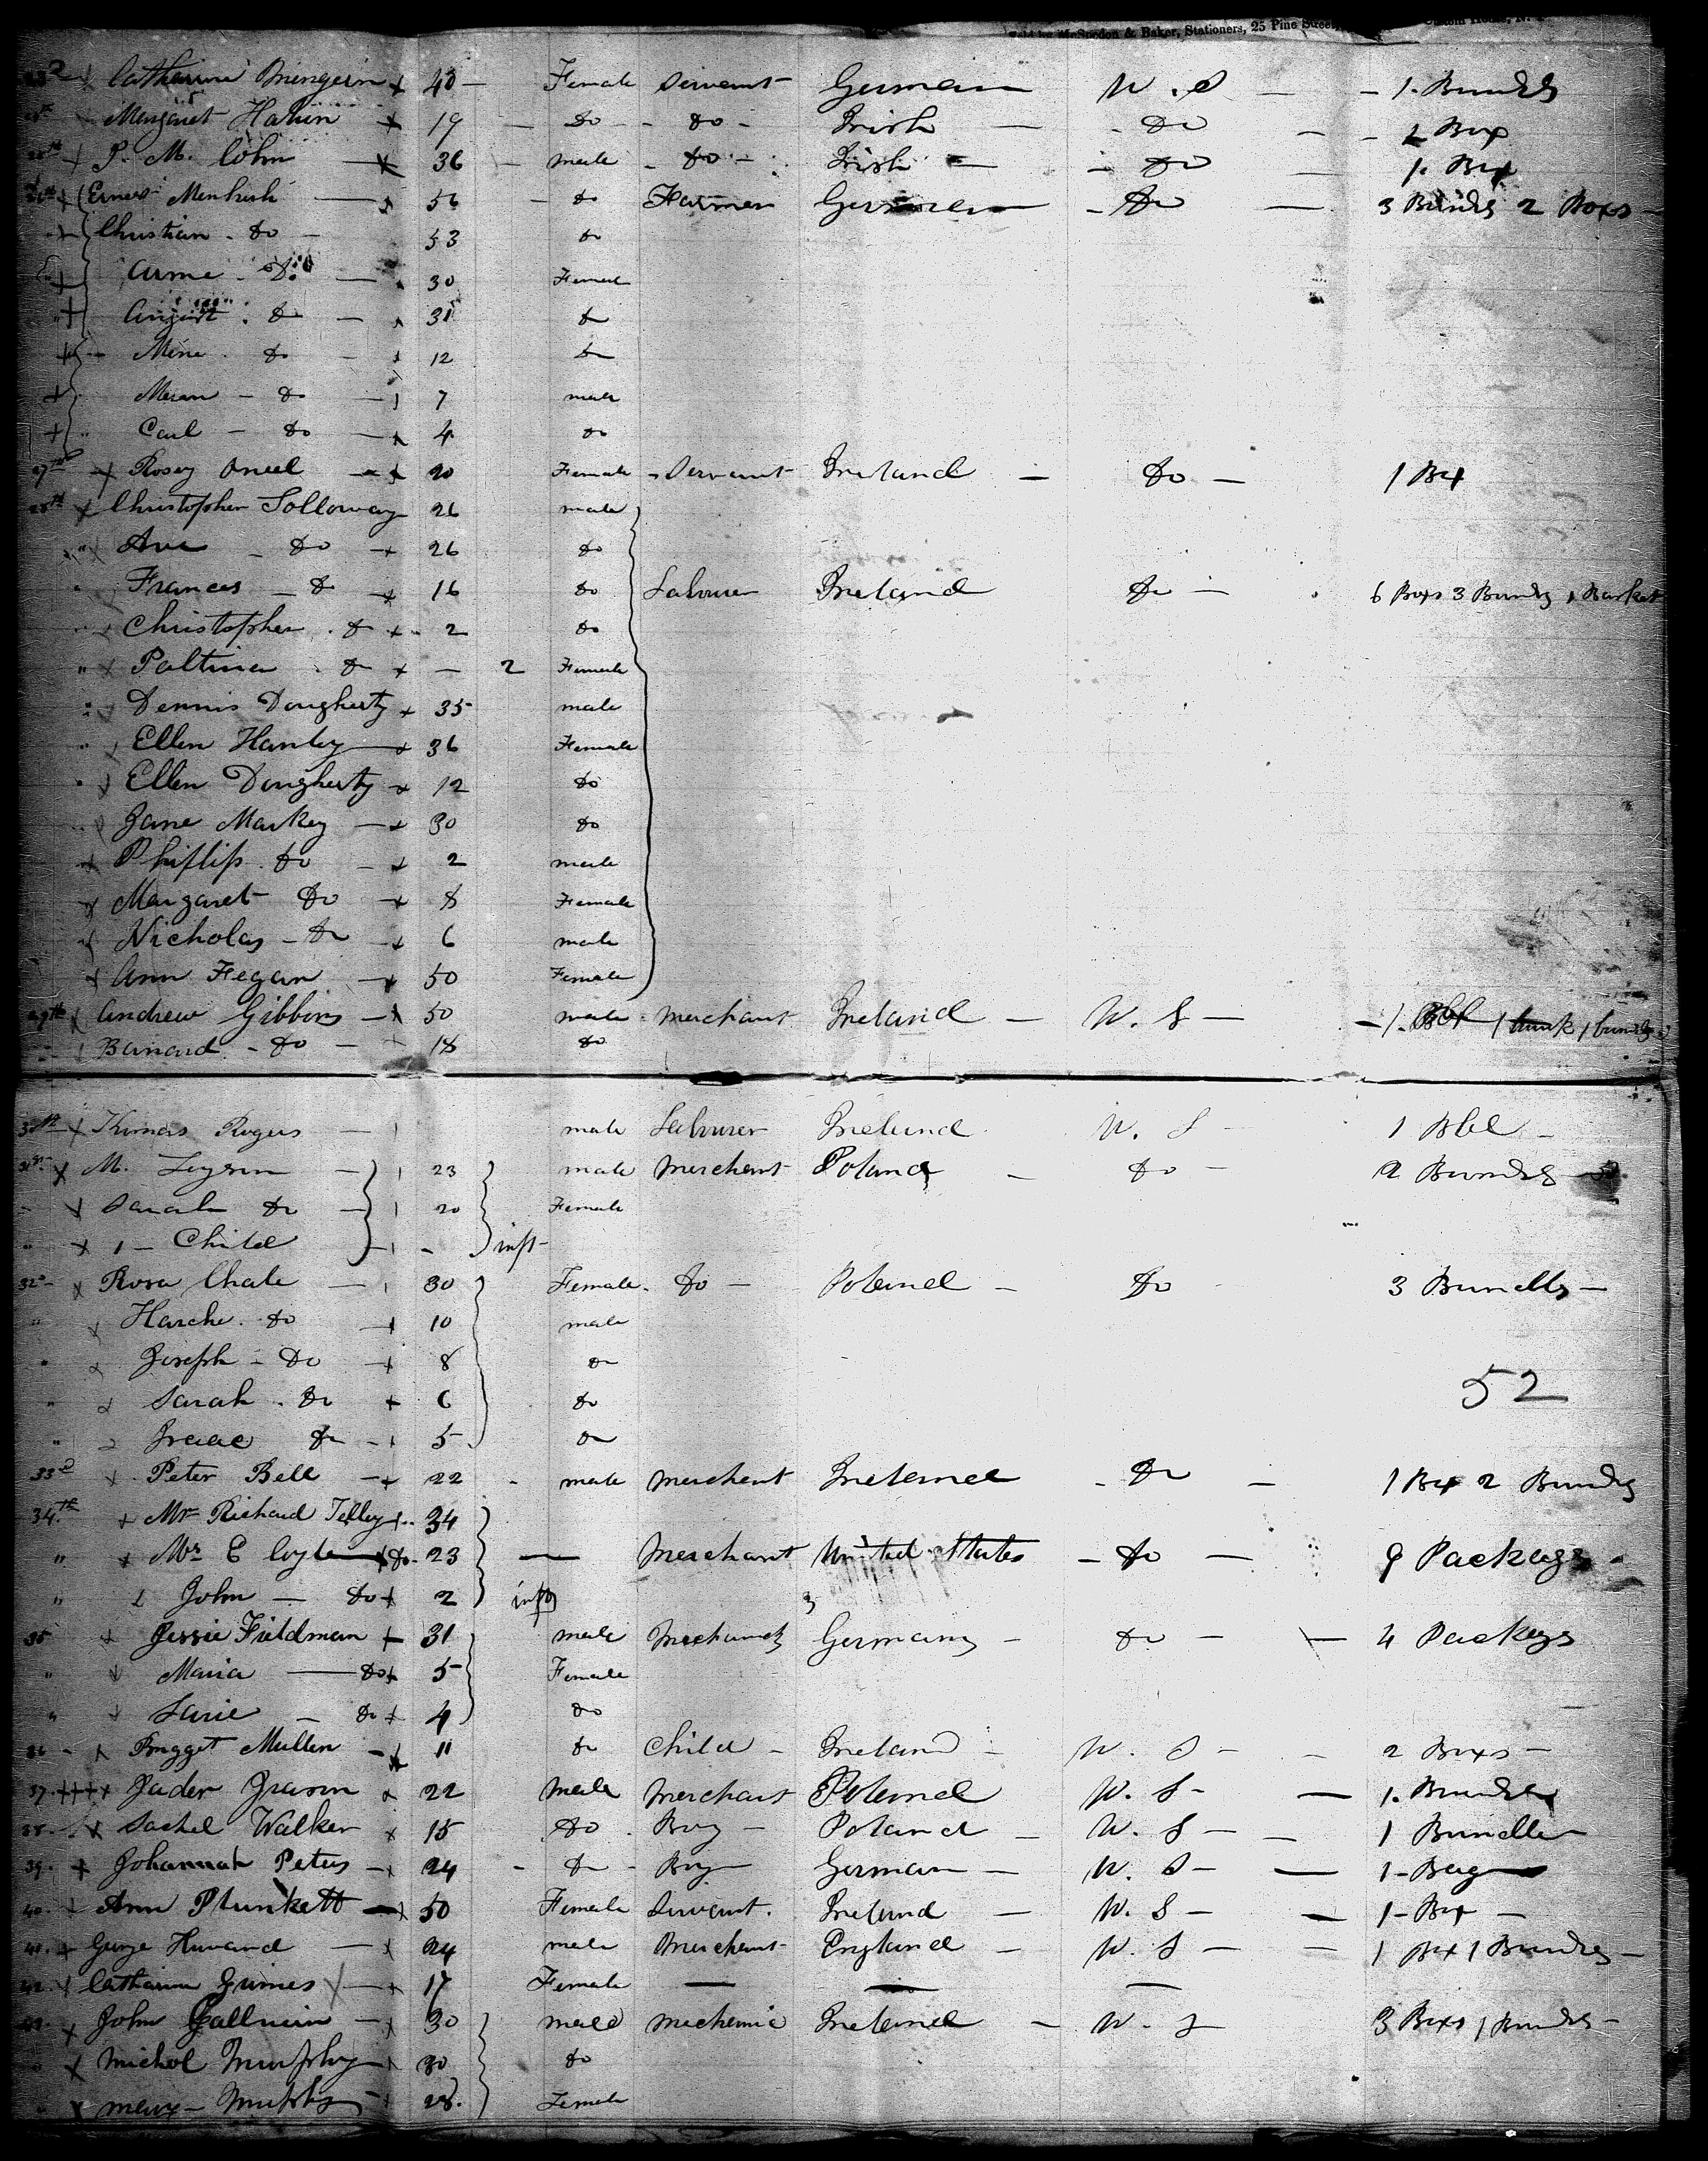 & Baker, Stationers, 25 Pine Street, Custom House, N. Y.
Catharine 40 - Female Servant German U. S - 1. Bundls
Margaret 19 - Do - Do - Irish - Do - 2 Box
25th P. M. Cohn 36 - male - Do - Irish - Do 1. Box
26th Ernest Menkush 56 - Do Farmer German - Do - 3 Bundls 2 Boxs -
Christian - Do - 53 Do
Do - 30 Female
August . Do - 31 Do
Mine . Do - 12 Do
Do - 7 male
Carl - Do - 4 Do
27th Rosey Oneel 20 Female - Servant Ireland - Do - 1 Box
28th Christopher Solloway 26 male
" Ann - Do 26 Do
" Frances - Do 16 Do Labourer Ireland Do - 6 Boxs 3 Bundls 1 Basket
" Christopher . Do 2 Do
" Do - 2 Female
" Dennis Dougherty 35 male
" Ellen Hanley 36 Female
" Ellen Dougherty 12 Do
" Jane Markey 30 Do
Phillip . Do 2 male
Margaret Do 8 Female
Nicholas - Do 6 male
Ann Fegan 50 Female
29th Andrew Gibbins 50 male - merchant Ireland - U. S - 1. Bbl 1 trunk 1 bundls
Barnard - Do - 18 Do
30th Thomas Rogers - male Labourer Ireland U. S - 1 Bbl -
31st M. 23 male merchant Poland - Do - 2 Bundls
Sarah Do 20 Female
" 1 - Child - inft
32d Rosa Chale - 30 Female . Do - Poland - Do 3 Bundlls -
" Harche . Do 10 male
" Joseph - Do 8 Do
" Sarah . Do 6 Do
52
" Isaac Do 5 Do
33d Peter Bell 22 - male merchant Ireland - Do - 1 Box 2 Bundls
34th Mr Richard Telley 34
" Mrs E Coyle Do 23 - Merchant United States - Do - 9 Packags
" John - Do 2 inft
35 Jessie Fieldman 31 male Mechanick Germany - Do - 4 Packags
" Maria - Do 5 Female
" Sarie - Do 4 Do
36 - Brigget Mullen 11 Do Child - Ireland - U. S - 2 Boxs -
37. Jader 22 male merchant Poland U. S - 1. Bundle
38. Sachel Walker 15 Do . Boy - Poland - U. S - 1 Bundle
39. Johannah Peters 24 - Do - Boy German - U. S - 1 - Bag
40. Ann Plunkett 50 Female Servant. Ireland - U. S - 1 - Box -
41. George Howard - 24 male Merchant England - U. S - 1 Box 1 Bundls -
42. Catharine Grimes 17 Female - - -
43. John Gallivin - 30 male mechanic Ireland - U. S 3 Boxs 1 Bundls -
" Michol Murphy 30 Do
" mary - Murphy 28. Female